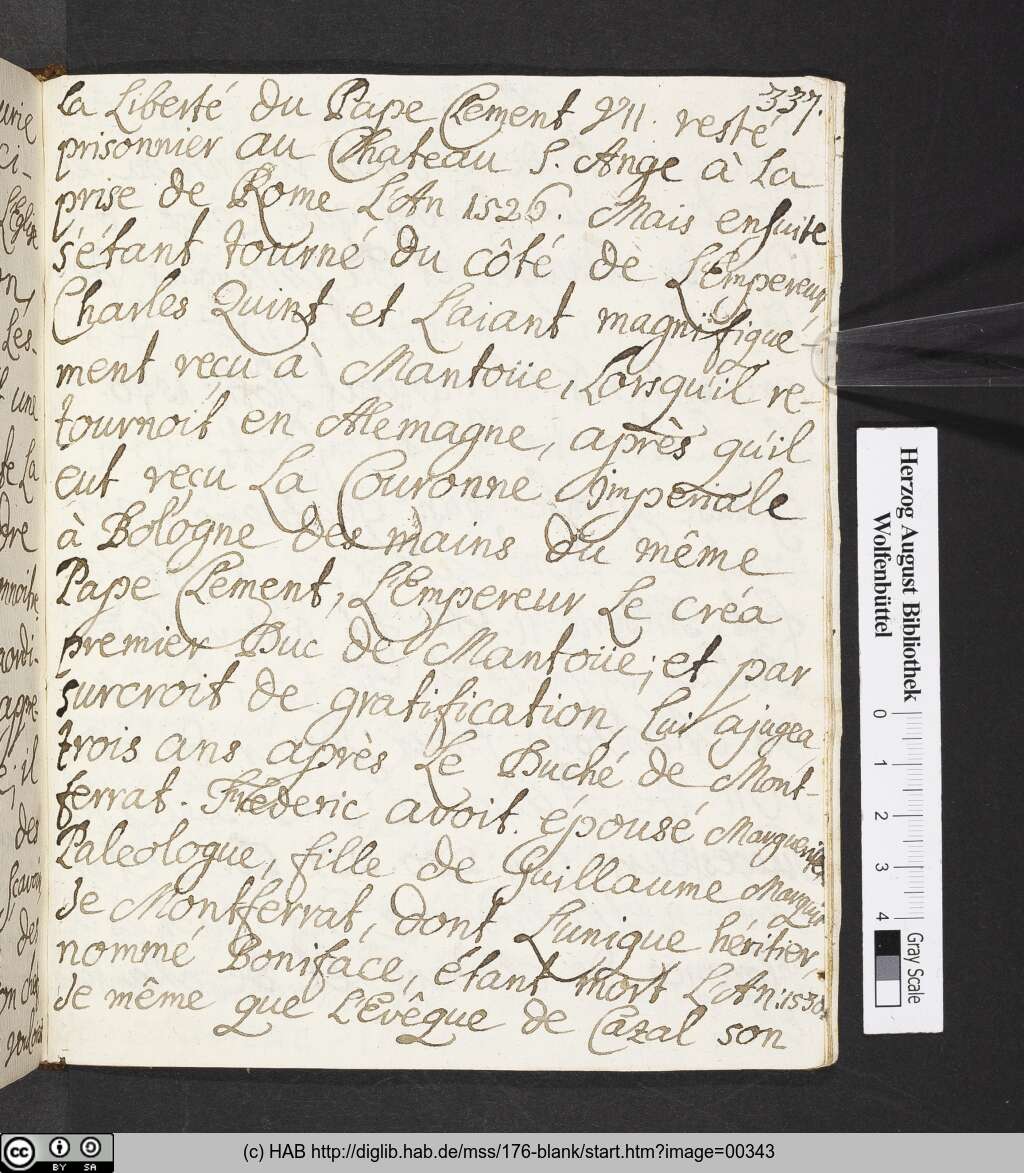 337.
la Liberté du Pape Clement VII. resté
prisonnier au Chateau S. Ange à La
prise de Rome L'An 1526. Mais ensuite
s'étant tourné du côté de L'Empereur
Charles Quint et L'aiant magnifique-
ment reçu à Mantoüe, Lorsqu'il re-
tournoit en Alemagne, après qu'il
eut reçu La Couronne Imperiale
à Bologne des mains du même
Pape Clement, L'Empereur Le créa
premier Duc de Mantoüe; et par
surcroit de gratification, lui ajugea
trois ans après Le Duché de Mont-
ferrat. Fréderic avoit épousé Marguerite
Paleologue, fille de Guillaume Marquis
de Montferrat, dont L'unique héritier,
nommé Boniface, étant mort L'An: 1530.
de même que L'Evêque de Cazal son
Herzog August Bibliothek
Wolfenbüttel
0 1 2 3 4
Gray Scale
cc BY SA
(c) HAB http://diglib.hab.de/mss/176-blank/start.htm?image=00343